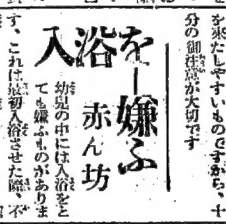 を來たしやすいものですから、十
分の御注意が大切です
入浴を嫌ふ
赤ん坊
幼兒の中には入浴をと
ても嫌ふものがありま
す、これは最初入浴させた際、不